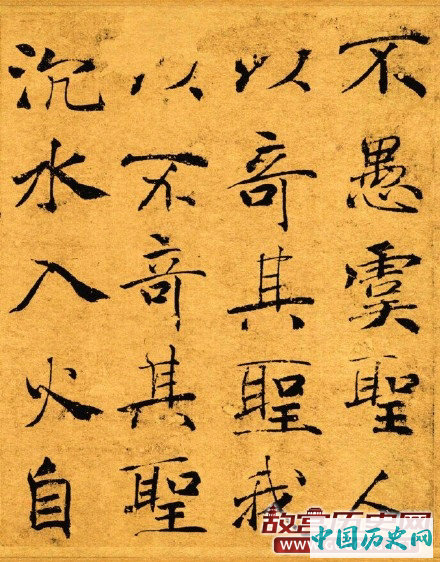 不愚虞聖人
以竒其聖我
以不竒其聖
沉水入火自
故宫历史网
中国历史网